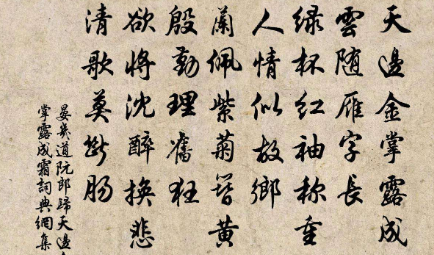 天邊金掌露成
雲随雁字長
绿杯紅袖稱重
人情似故鄉
蘭佩紫菊簪黃
殷勤理舊狂
欲將沈醉換悲
清歌莫斷腸
晏幾道阮郎歸天邊
掌露成霜詞典網集